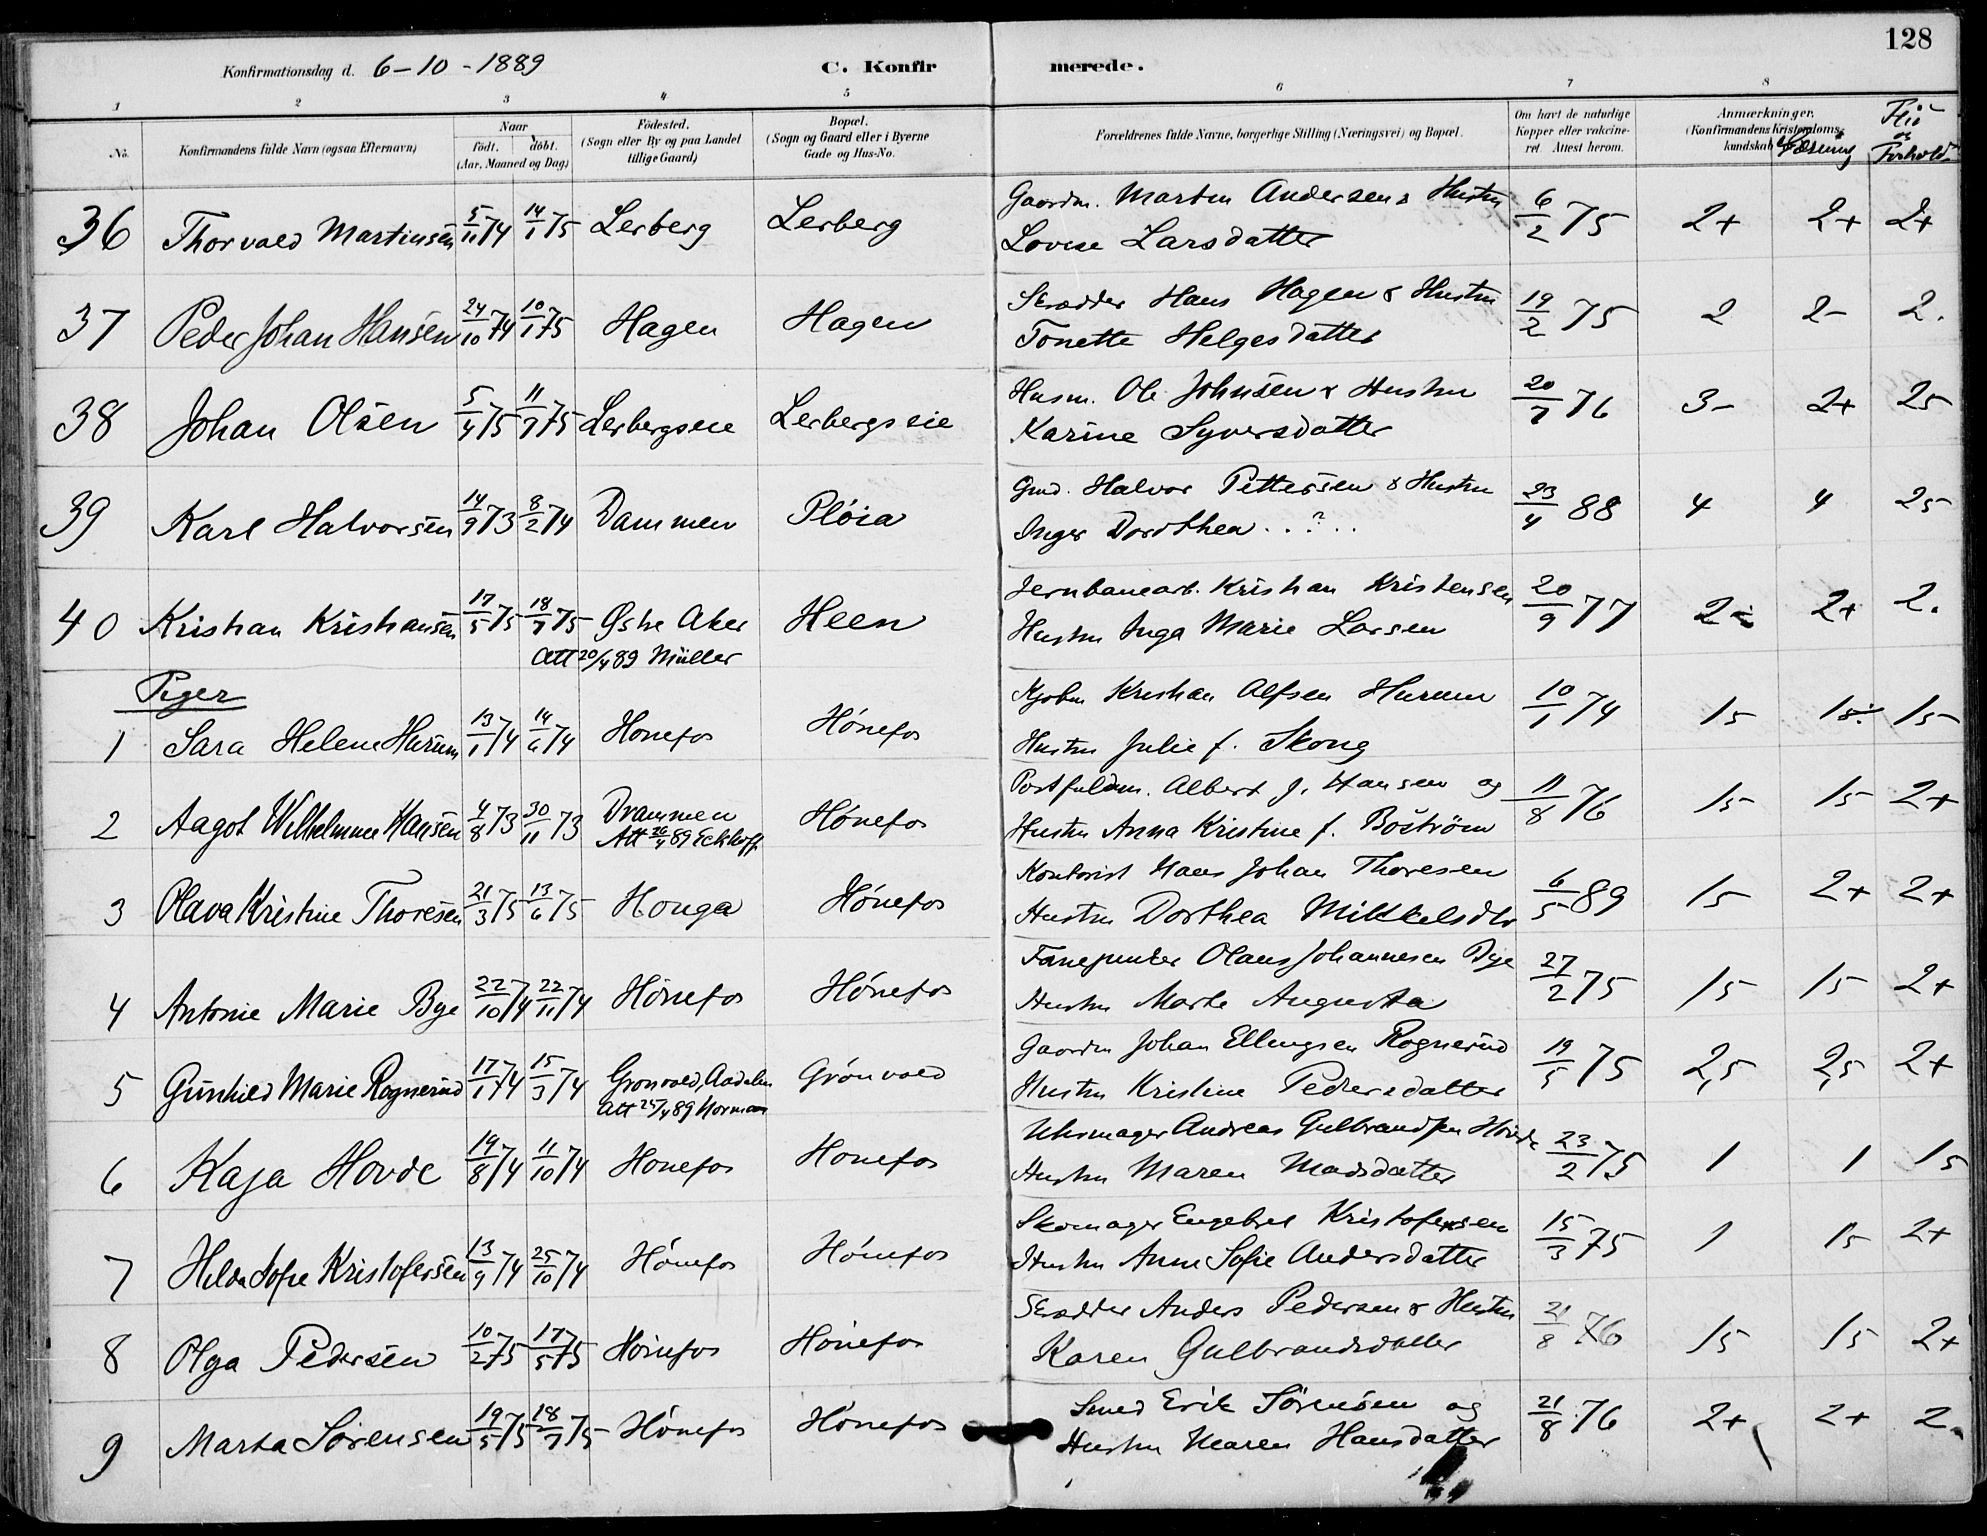 128
Konfirmationsdag d. 6-10-1889 C. Konfirmerede.
1 2 3 4 5 6 7 8
No. Konfirmandens fulde Navn (ogsaa Efternavn) Naar født. døbt. (Aar, Maaned og Dag) Fødested. (Sogn eller By og paa Landet tillige Gaard) Bopæl. (Sogn og Gaard eller i Byerne Gade og Hus-No. Forældrenes fulde Navne, borgerlige Stilling (Næringsvei) og Bopæl. Om havt de naturlige Kopper eller vakcineret. Attest herom. Anmærkninger. (Konfirmandens Kristendomskundskab Læsning Flid og Forhold
36 Thorvald Martinsen 5/11 74 14/1 75 Lerberg Lerberg Gaardm. Martin Andersen & Hustru 6/2 75 2+ 2+ 2+
Lovise Larsdatter
37 Peder Johan Hansen 24/10 74 10/1 75 Hagen Hagen Skrædder Hans Hagen & Hustru 19/2 75 2 2- 2.
Tonette Helgesdatter
38 Johan Olsen 5/4 75 11/7 75 Lerbergseie Lerbergseie Husm. Ole Johnsen & Hustru 20/7 76 3- 2+ 25
Karine Syversdatter
39 Karl Halvorsen 14/9 73 8/2 74 Dammen Pløia Gmd. Halvor Pettersen & Hustru 23/4 88 4 4 25
Inger Dorothea . . ? . .
40 Kristian Kristiansen 17/5 75 18/7 75 Østre Aker Heen Jernbanearb. Kristian Kristensen 20/9 77 2 2+ 2.
Att 20/4 89 Müller Hustru Inga Marie Larsen
Piger
1 Sara Helene Hurum 13/1 74 14/6 74 Hønefos Hønefos Kjøbm Kristian Alfsen Hurum 10/1 74 15 15 15
Hustru Julie f. Skong
2 Aagot Wilhelmine Hansen 4/8 73 30/11 73 Drammen Hønefos Postfuldm. Albert J. Hansen og 11/8 76 15 15 2+
Att 26/4 89 Eckhoff Hustru Anna Kristine f. Boström
3 Olava Kristine Thoresen 21/3 75 13/6 75 Honga Hønefos Kontorist Hans Johan Thoresen 6/5 89 15 2+ 2+
Hustru Dorthea Mikkelsdtr
4 Antonie Marie Bye 22/10 74 22/11 74 Hønefos Hønefos Fanejunker Olaus Johannesen Bye 27/2 75 15 15 2+
Hustru Marte Augusta
5 Gunhild Marie Rognerud 17/1 74 15/3 74 Grønvold, Aadalen Grønvold Gaardm Johan Ellingsen Rognerud 19/5 75 2,5 2,5 2+
Att 25/4 89 Norman Hustru Kristine Pedersdatter
6 Kaja Hovde 19/8 74 11/10 74 Hønefos Hønefos Uhrmager Andreas Gulbrandsen Hovde 23/2 75 1 1 15
Hustru Maren Madsdatter
7 Hilda Sofie Kristofersen 13/9 74 25/10 74 Hønefos Hønefos Skomager Engebret Kristofersen 15/3 75 1 15 2+
Hustru Anne Sofie Andersdatter
8 Olga Pedersen 10/2 75 17/5 75 Hønefos Hønefos Skrædder Anders Pedersen & Hustru 21/8 76 15 15 2+
Karen Gulbrandsdatter
9 Marta Sørensen 19/5 75 18/7 75 Hønefos Hønefos Smed Erik Sørensen og 21/8 76 2+ 2+ 2.
Hustru Maren Hansdatter